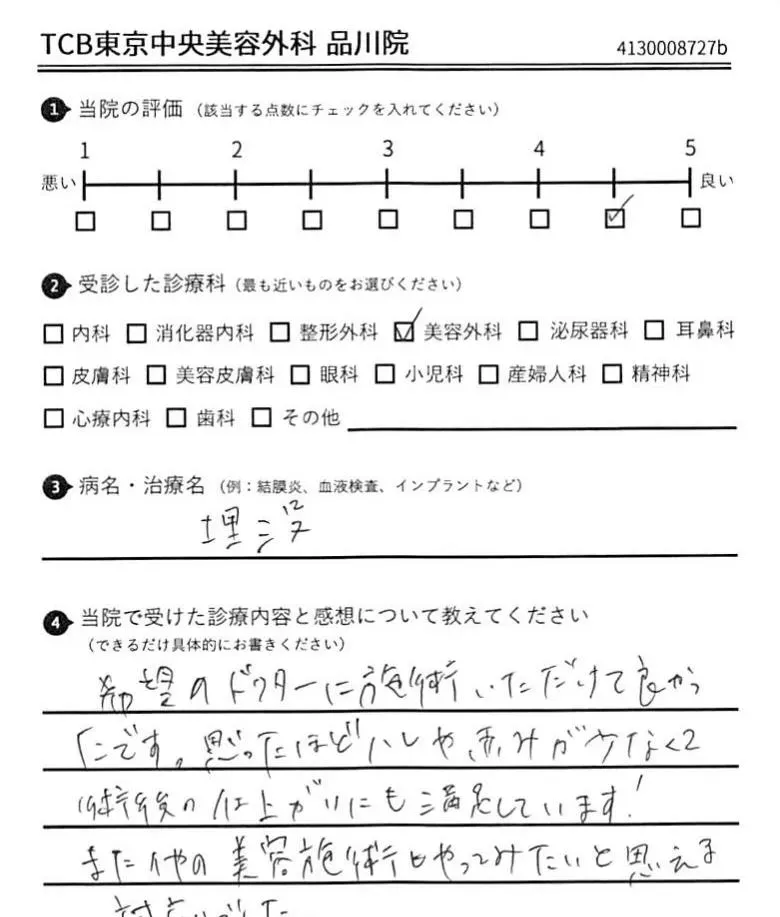 TCB東京中央美容外科 品川院
4130008727b
1 当院の評価（該当する点数にチェックを入れてください）
1 2 3 4 5
悪い 良い
2 受診した診療科（最も近いものをお選びください）
内科 消化器内科 整形外科 美容外科 泌尿器科 耳鼻科
皮膚科 美容皮膚科 眼科 小児科 産婦人科 精神科
心療内科 歯科 その他
3 病名・治療名（例：結膜炎、血液検査、インプラントなど）
埋没
4 当院で受けた診療内容と感想について教えてください
（できるだけ具体的にお書きください）
希望のドクターに施術いただけて良かっ
たです。思ったほどハレや赤みが少なくて
術後の仕上がりにも満足しています!
また他の美容施術もやってみたいと思える